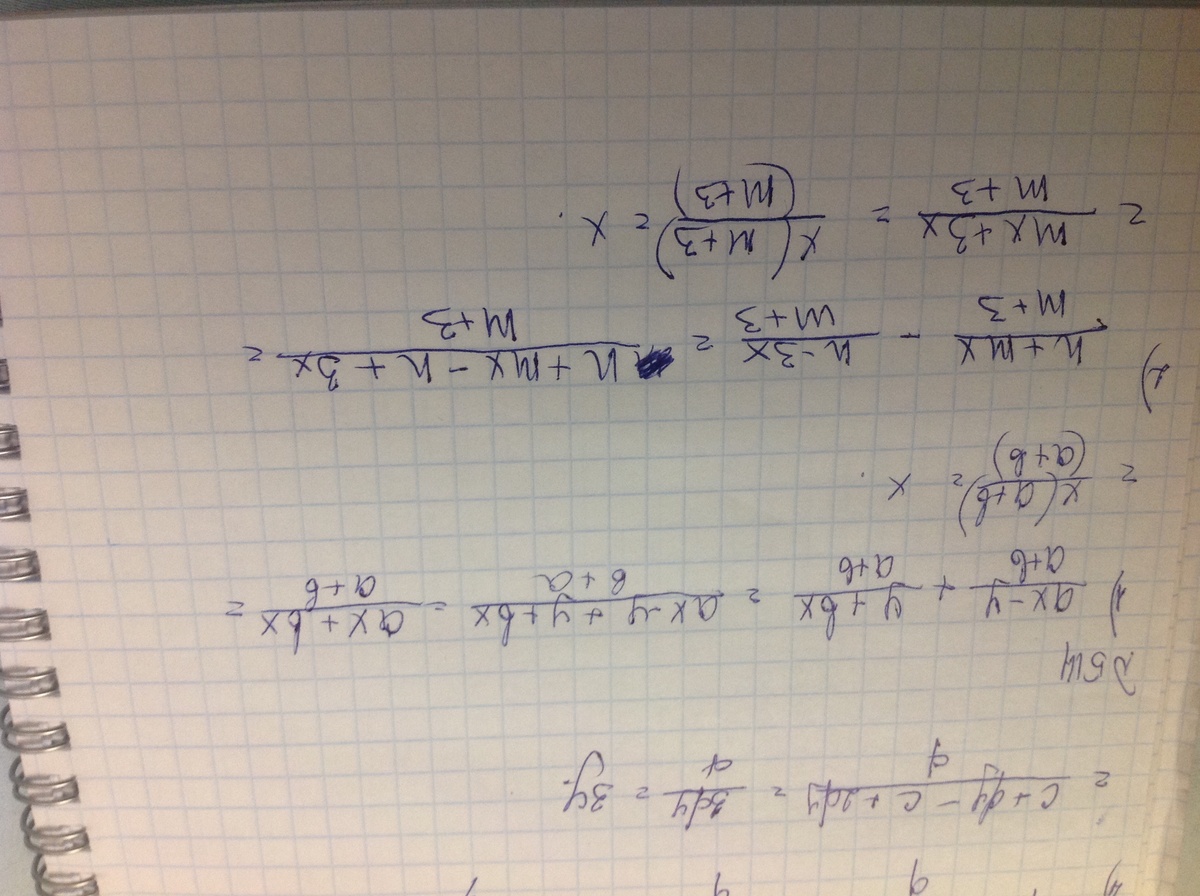 = (c + dy - c + 2dy)/d = 3dy/d = 3y.
2514
1) (ax - y)/(a+b) + (y + bx)/(a+b) = (ax - y + y + bx)/(b + a) = (ax + bx)/(a + b) =
= x(a+b)/(a+b) = x.
2) (n + mx)/(m + 3) - (n - 3x)/(m + 3) = (n + mx - n + 3x)/(m + 3) =
= (mx + 3x)/(m + 3) = x(m+3)/(m+3) = x.